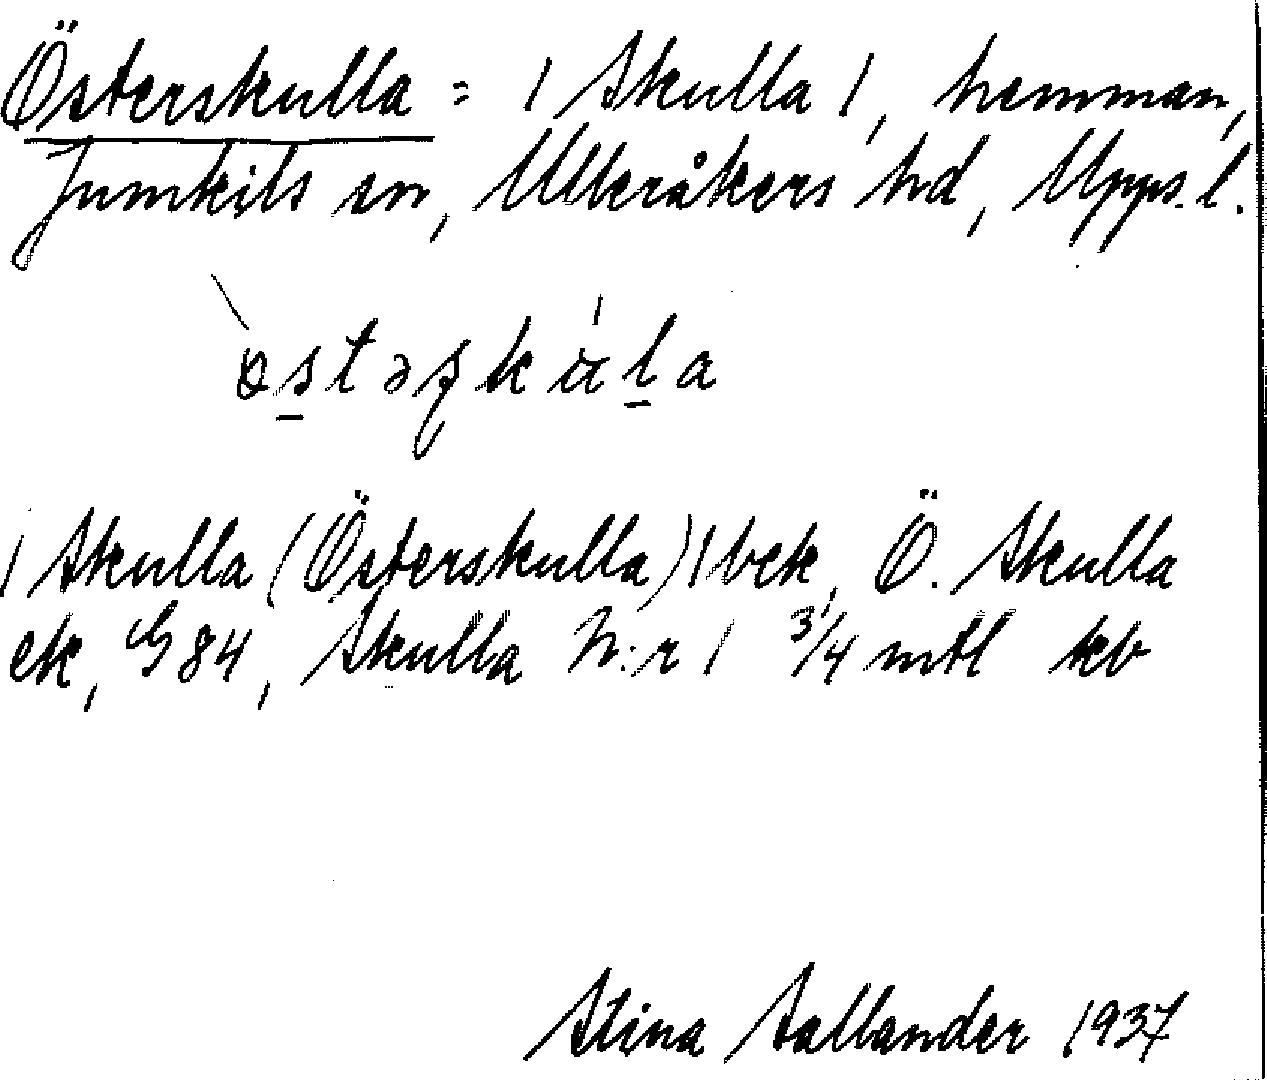 Österskulla = / Skulla /, hemman,
Jumkils sn, Ulleråkers hd, Upps. l.
/ Skulla (Österskulla) / bek, Ö. Skulla
ek, G 84, Skulla N:r 1 3/4 mtl kb
Stina Sallander 1937